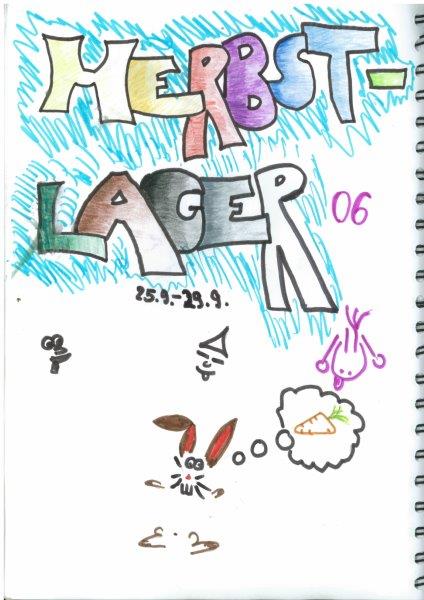 HERBST-
LAGER
06
25.9.-29.9.